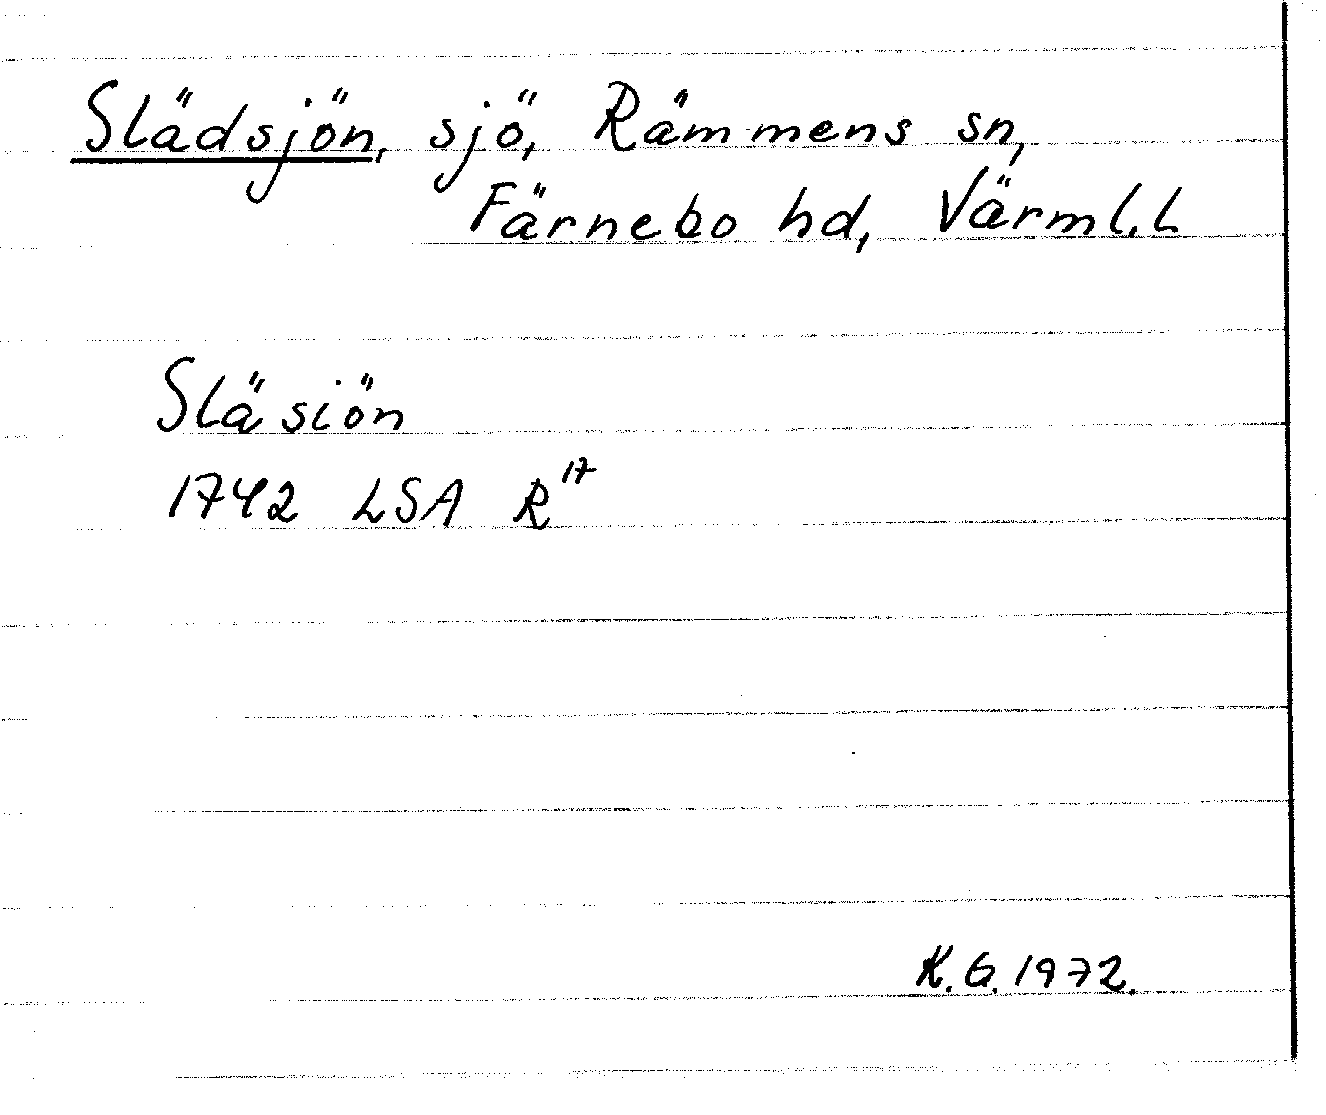 Slädsjön, sjö, Rämmens sn,
Färnebo hd, Värml.L
Släsiön
1742 LSA R17
K.G.1972.